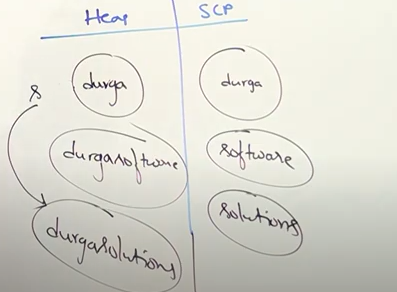 Heap SCP
durga durga
s
durgasoftware software
durgasolutions solutions